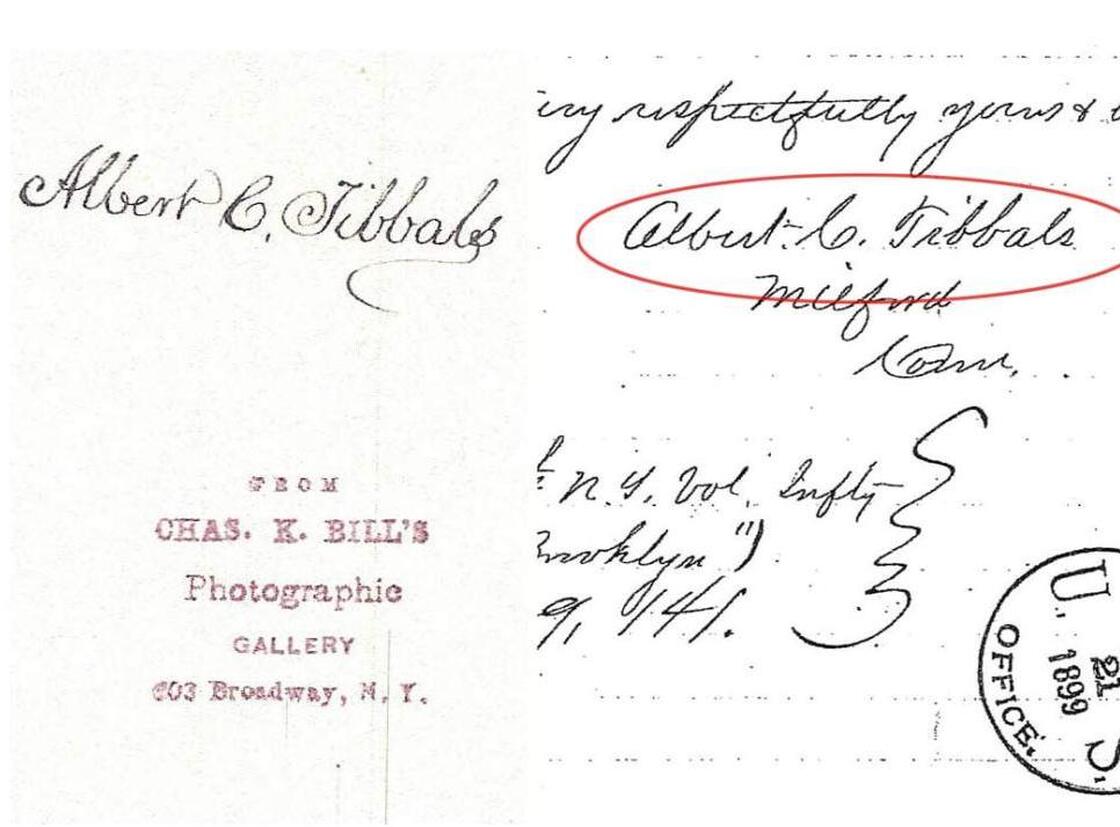 Albert C. Tibbals
FROM
CHAS. K. BILL'S
Photographic
GALLERY
603 Broadway, N. Y.
respectfully yours &
Albert C. Tibbals
Milford
Conn.
N. Y. Vol. Infty
Brooklyn")
9, 141.
U. S.
21
1899
OFFICE.